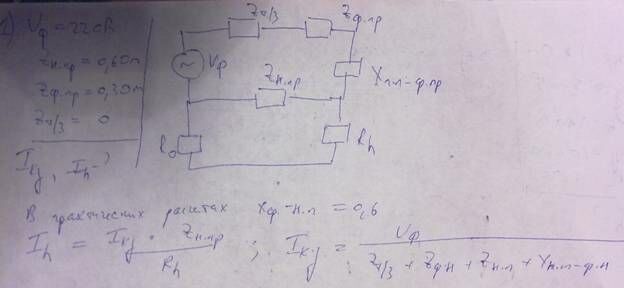 1) Uф = 220В
Zн.пр = 0,6Ом
Zф.пр = 0,3Ом
Zт/3 = 0
Iкз, Ih - ?
Zт/3
Zф.пр
~ Uф
Zн.пр
Xн.п-ф.пр
R0
Rh
В практических расчетах Xф.-н.п = 0,6
Ih = Iкз · Zн.пр / Rh ; Iкз = Uф / Zт/3 + Zф.п + Zн.п + Xн.п-ф.п